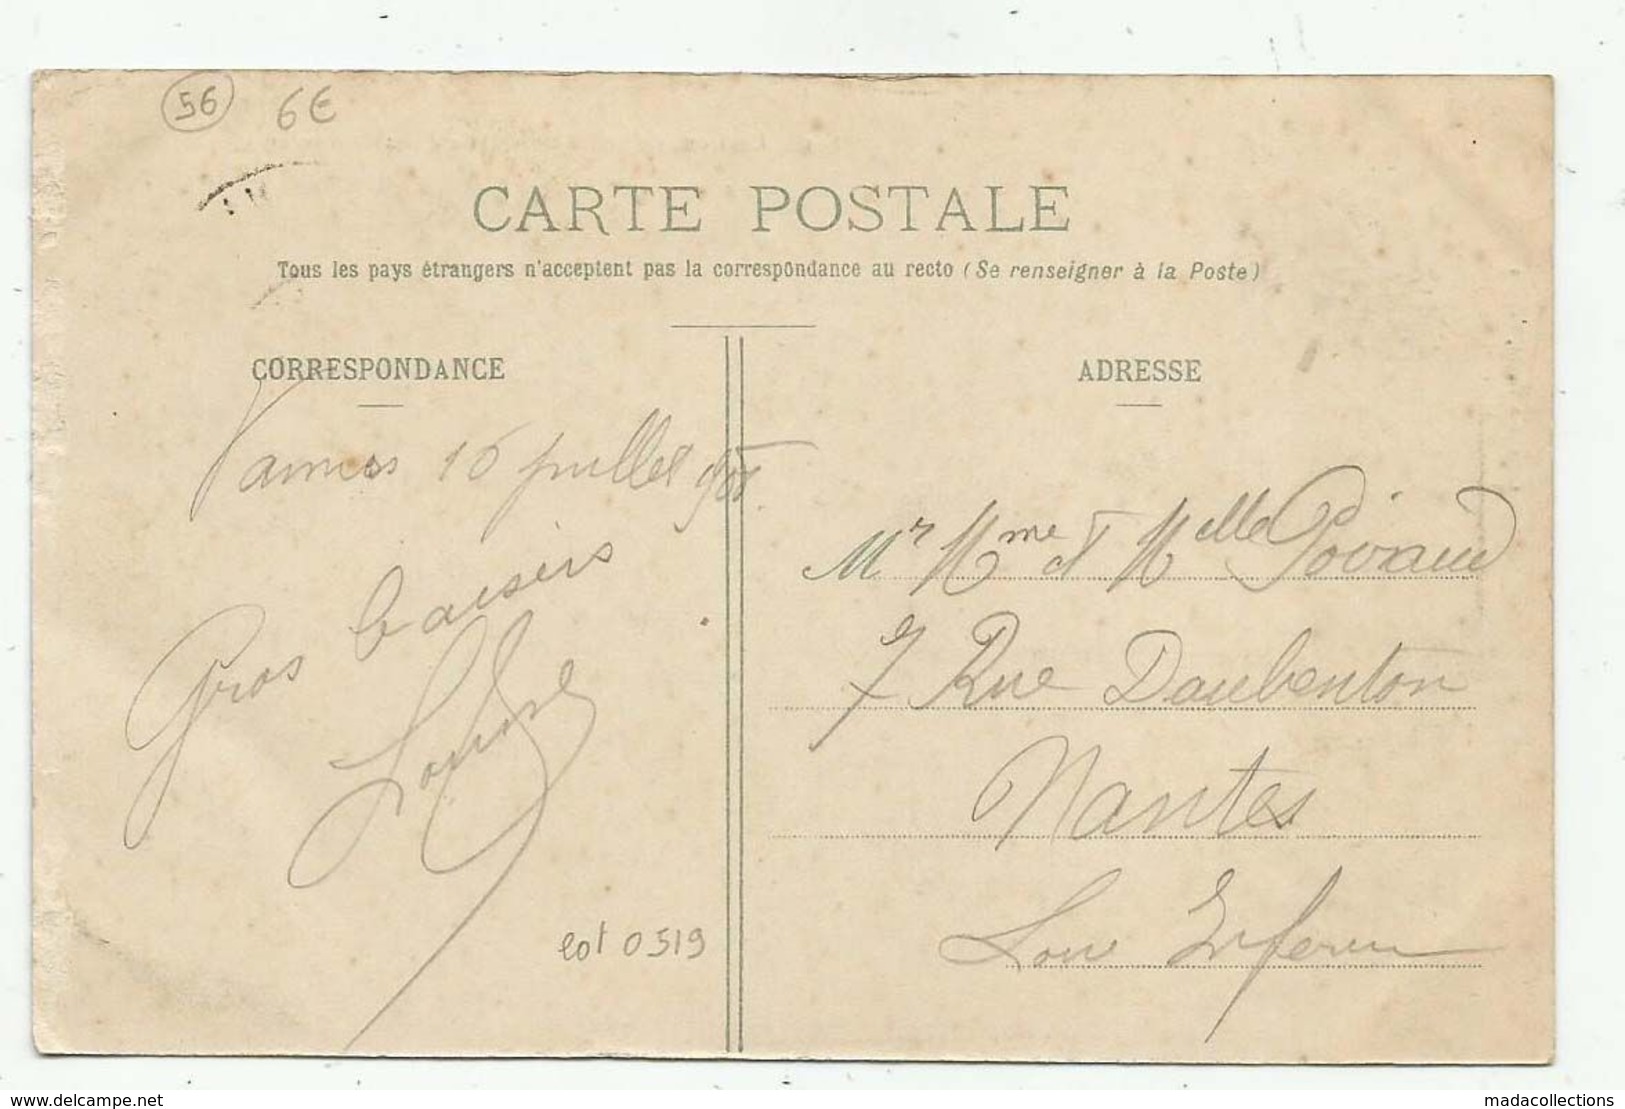 56 6€
CARTE POSTALE
Tous les pays étrangers n'acceptent pas la correspondance au recto (Se renseigner à la Poste)
CORRESPONDANCE
Vannes 16 juillet 905
Gros baisers
ADRESSE
Mr Mme et Melle
7 Rue Daubenton
Nantes
Loire Inferre
lot 0519
delcampe.net
madacollections